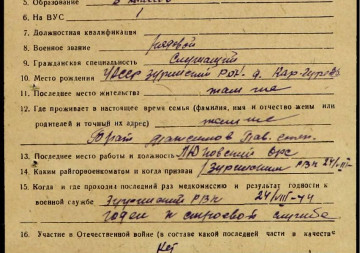 5. Образование
6. На ВУС 1
7. Должностная квалификация
8. Военное звание рядовой
9. Гражданская специальность служащий
10. Место рождения УАССР Зуринский р-он д.
11. Последнее место жительства там же
12. Где проживает в настоящее время семья (фамилия, имя и отчество жены или
родителей и точный их адрес) там же
Брат
13. Последнее место работы и должность
14. Каким райгорвоенкоматом и когда призван Зуринским РВК 24/VIII-44
15. Когда и где проходил последний раз медкомиссию и результат годности к
военной службе Зуринский РВК 24/VIII-44
годен к строевой службе
16. Участие в Отечественной войне (в составе какой последней части в качестве
Нет